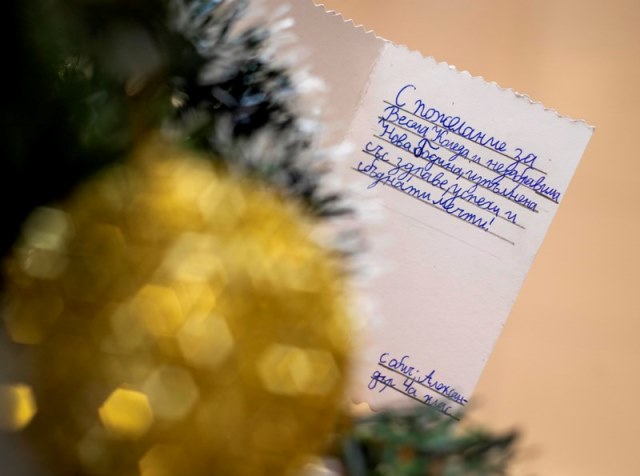 С пожелание за
Весела Коледа и незабравима
Нова Година изпълнена
със здраве успехи и
сбъднати мечти!
С обич: Алексан-
дър 4а клас